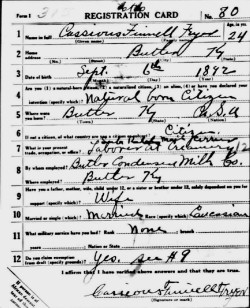 Form 1 REGISTRATION CARD No. 80
1 Name in full Cassious Finnell Fryor Age, in yrs. 24
2 Home address Butler Ky
3 Date of birth Sept. 6th 1892
4 Are you (1) a natural-born citizen, (2) a naturalized citizen, (3) an alien, (4) or have you declared your intention (specify which)? Natural born Citizen
5 Where were you born? Butler Ky U.S.A
6 If not a citizen, of what country are you a citizen or subject? Citizen
7 What is your present trade, occupation, or office? Laborer at Creamery
8 By whom employed? Butler Condensed Milk Co.
Where employed? Butler Ky
9 Have you a father, mother, wife, child under 12, or a sister or brother under 12, solely dependent on you for support (specify which)? Wife
10 Married or single (which)? Married Race (specify which)? Caucasian
11 What military service have you had? Rank None ; branch
years ; Nation or State
12 Do you claim exemption from draft (specify grounds)? Yes. see #9
I affirm that I have verified above answers and that they are true.
Cassious Finnell Fryor
(Signature or mark)